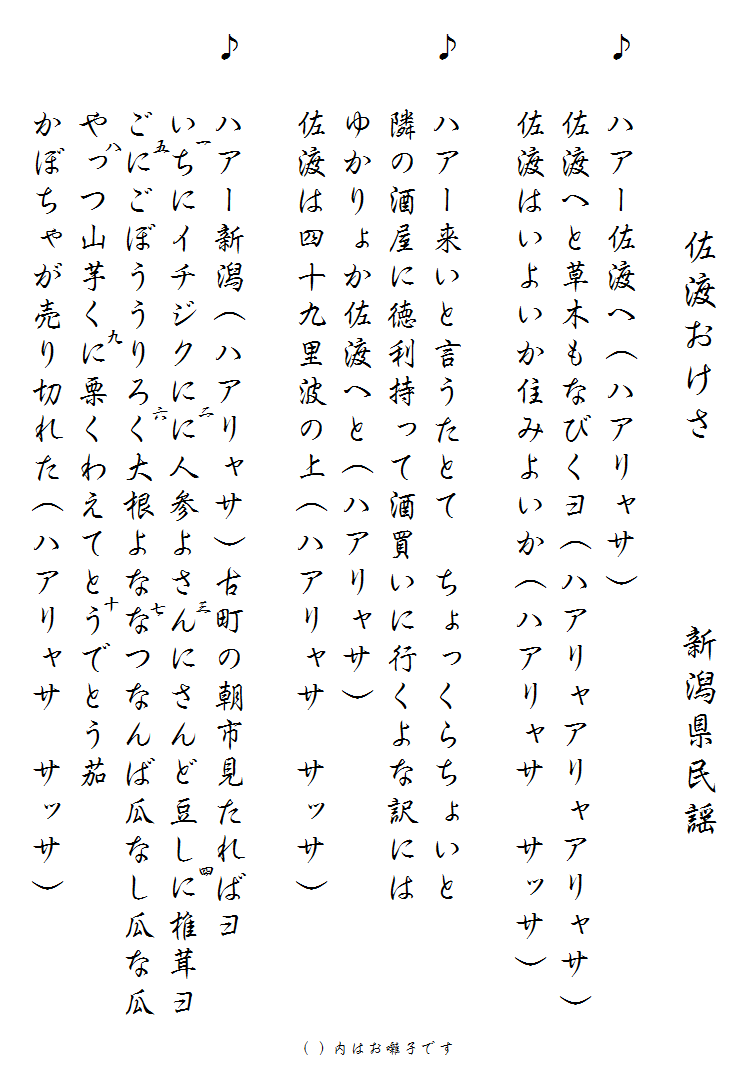 佐渡おけさ　新潟県民謡
♪
ハアー佐渡へ（ハアリャサ）
佐渡へと草木もなびくヨ（ハアリャアリャアリャサ）
佐渡はいよいか住みよいか（ハアリャサ　サッサ）
♪
ハアー来いと言うたとて　ちょっくらちょいと
隣の酒屋に徳利持って酒買いに行くよな訳には
ゆかりょか佐渡へと（ハアリャサ）
佐渡は四十九里波の上（ハアリャサ　サッサ）
♪
ハアー新潟（ハアリャサ）古町の朝市見たればヨ
いちにイチジクにに人参よさんにさんど豆しに椎茸ヨ
一　二　三　四
ごにごぼううりろく大根よななつなんば瓜なし瓜な瓜
五　六　七
やっつ山芋くに栗くわえてとうでとう茄
八　九　十
かぼちゃが売り切れた（ハアリャサ　サッサ）
（　）内はお囃子です